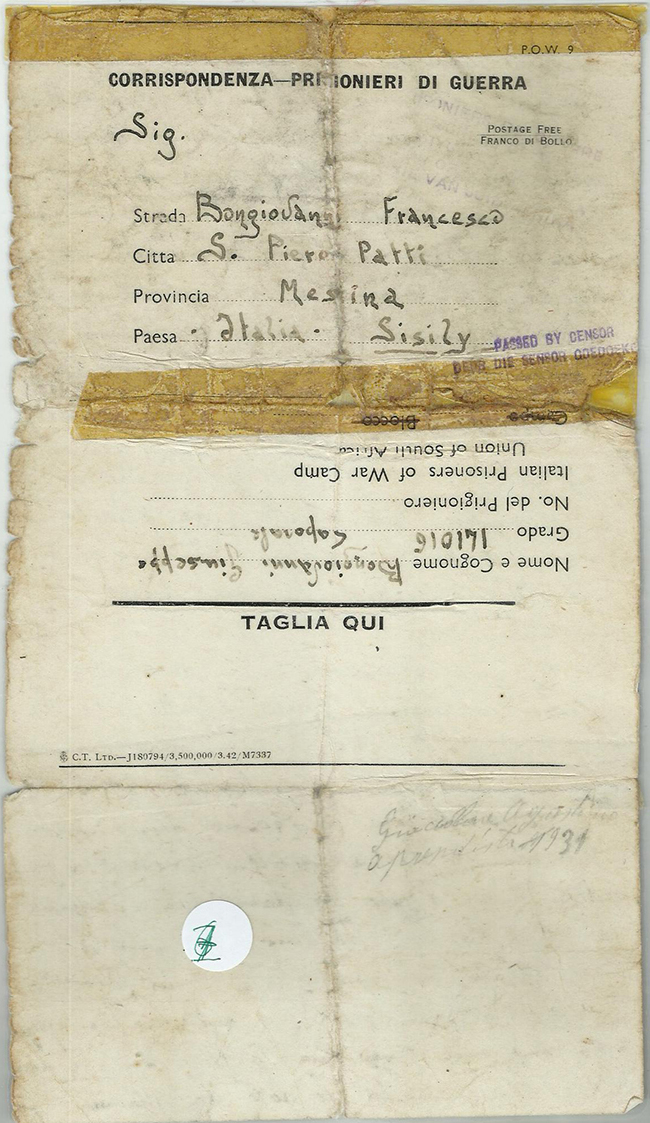 P.O.W 9
CORRISPONDENZA—PRIGIONIERI DI GUERRA
Sig.
POSTAGE FREE
FRANCO DI BOLLO
Strada Bongiovanni Francesco
Citta S. Piero Patti
Provincia Messina
Paesa Italia. Sisily
PASSED BY CENSOR
DEUR DIE SENSOR GOEDGEKE
Campo Blocco
Union of South Africa
Italian Prisoners of War Camp
No. del Prigioniero
Grado 141016 Caporale
Nome e Cognome Bongiovanni Giuseppe
TAGLIA QUI
C.T. LTD.—J1S0794/3,500,000/3.42/M7337
1931